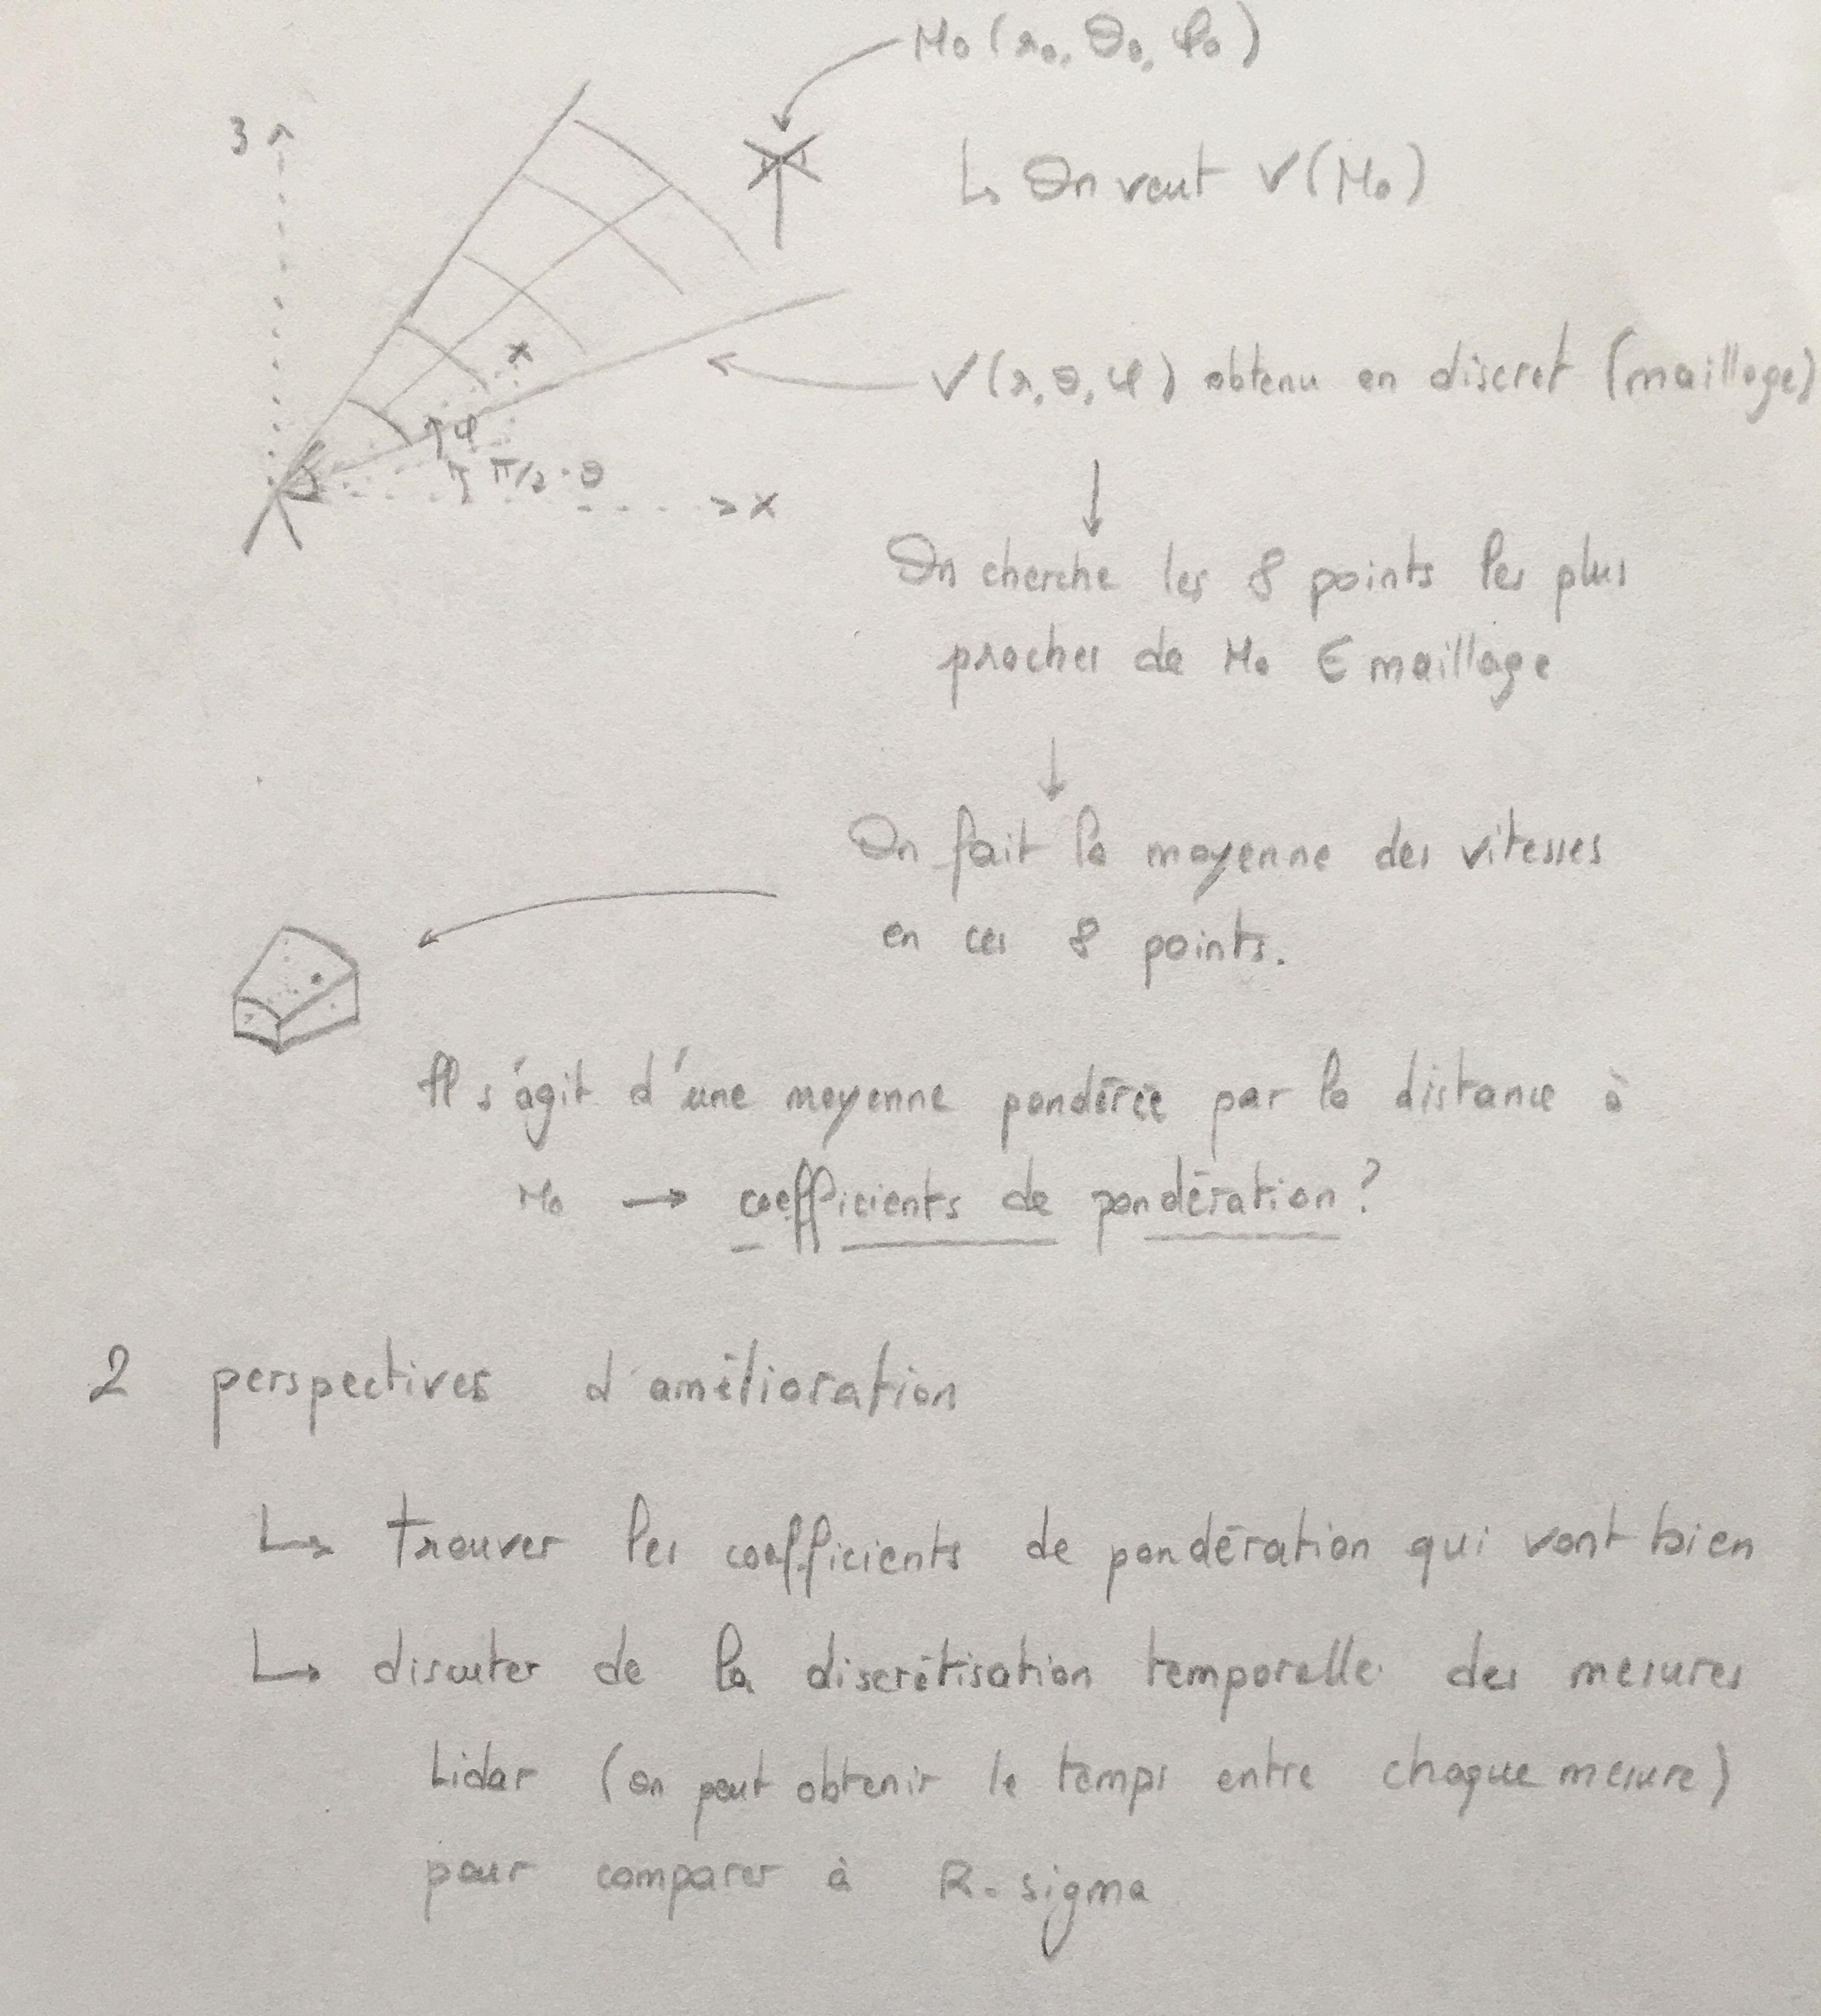 M₀(r₀, θ₀, φ₀)
z
↳ On veut V(M₀)
x
V(r, θ, φ) obtenu en discret (maillage)
φ
π/2 - θ
x
On cherche les 8 points les plus
proches de M₀ ∈ maillage
On fait la moyenne des vitesses
en ces 8 points.
Il s'agit d'une moyenne pondérée par la distance à
M₀ → coefficients de pondération ?
2 perspectives d'amélioration
↳ trouver les coefficients de pondération qui vont bien
↳ discuter de la discrétisation temporelle des mesures
Lidar (on peut obtenir le temps entre chaque mesure)
pour comparer à R-sigma